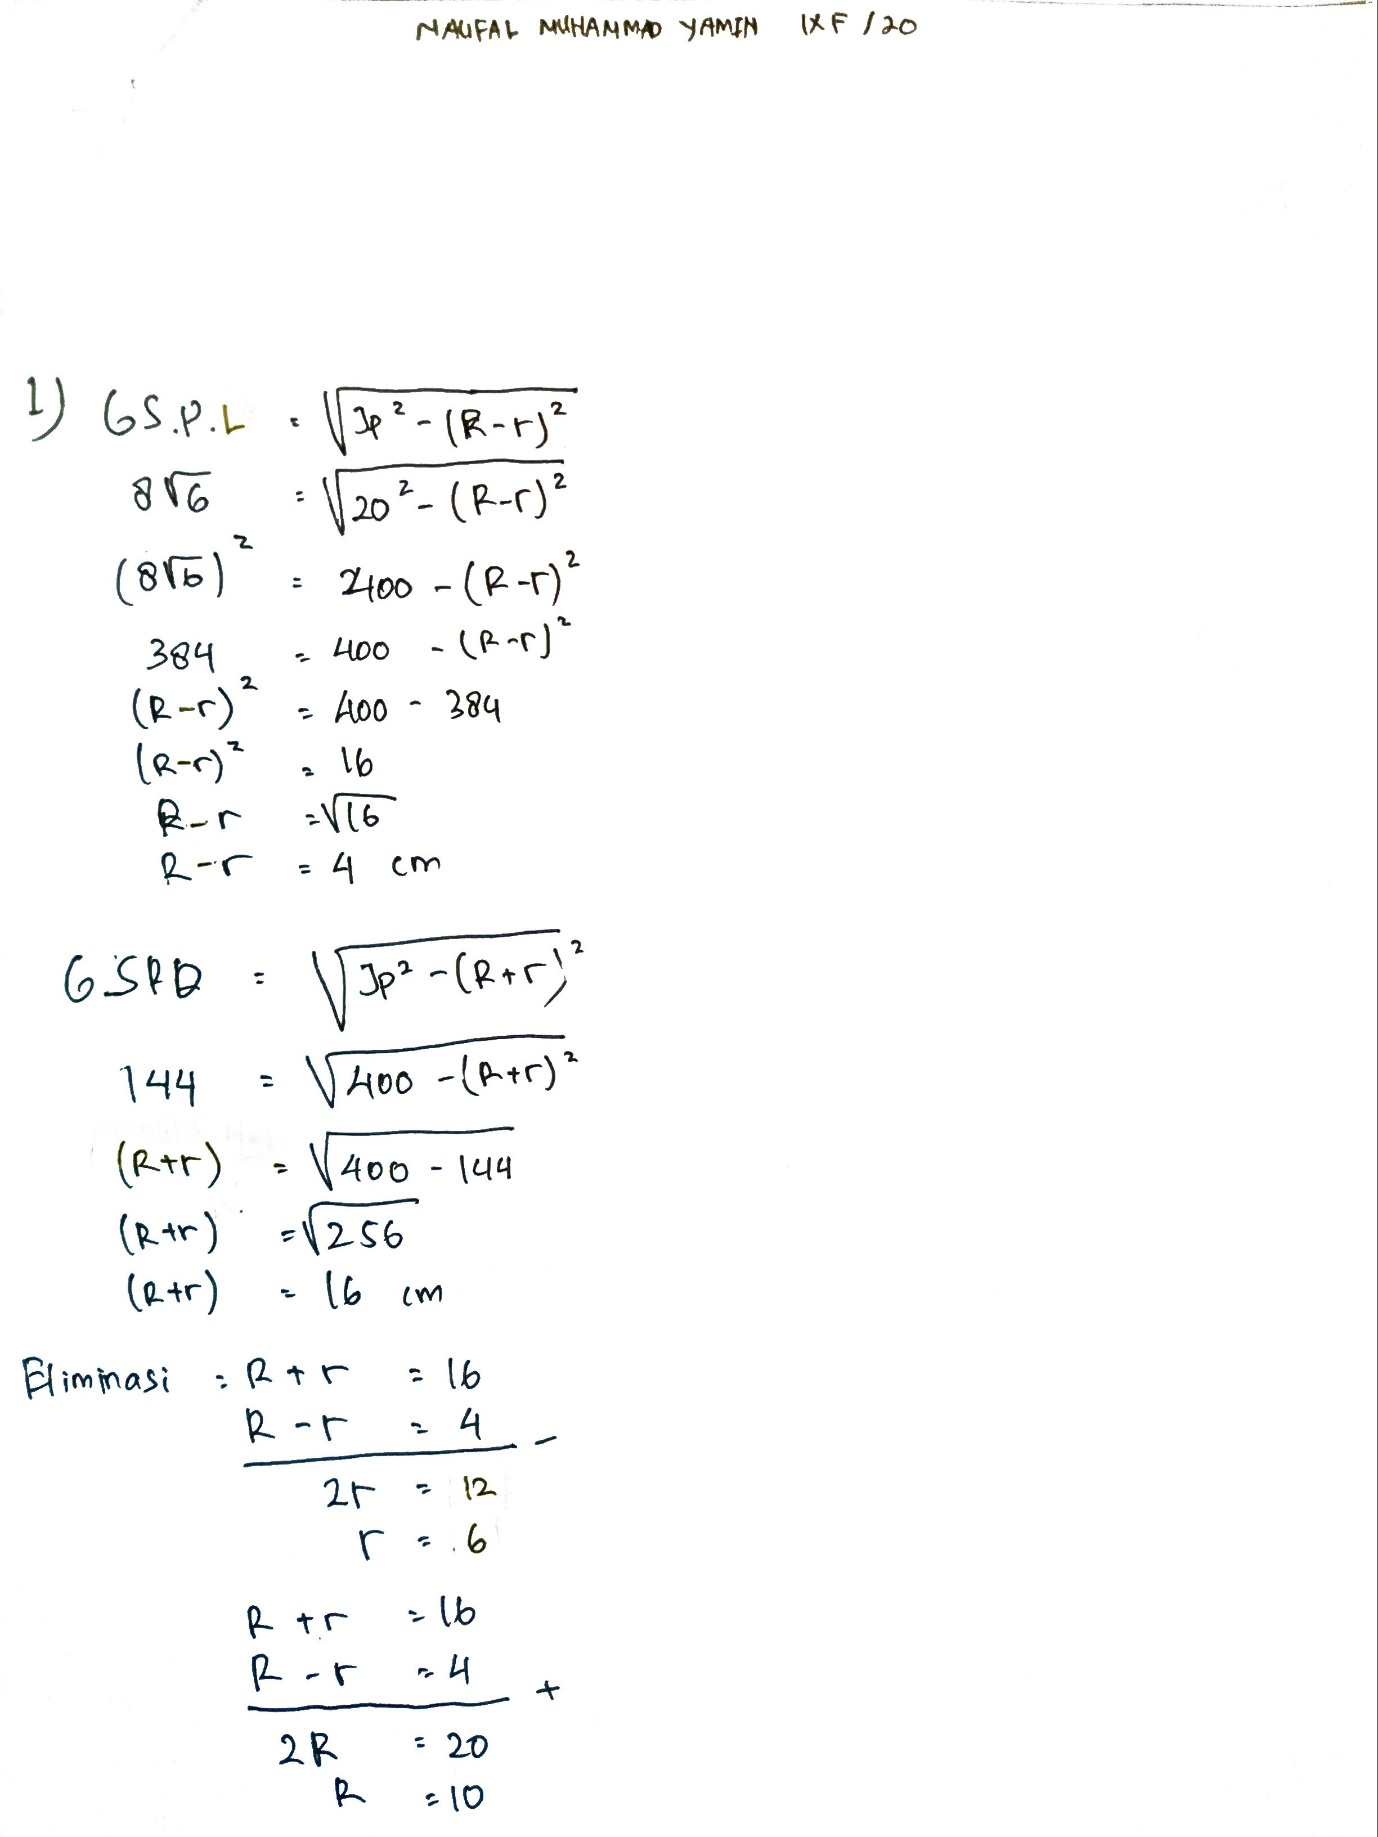 NAUFAL MUHAMMAD YAMIN IXF / 20
1) GS.P.L = √(Jp² - (R-r)²)
8√6 = √(20² - (R-r)²)
(8√6)² = 400 - (R-r)²
384 = 400 - (R-r)²
(R-r)² = 400 - 384
(R-r)² = 16
R-r = √16
R-r = 4 cm
GSPD = √(Jp² - (R+r)²)
144 = √(400 - (R+r)²)
(R+r) = √(400 - 144)
(R+r) = √256
(R+r) = 16 cm
Eliminasi : R + r = 16
R - r = 4 -
2r = 12
r = 6
R + r = 16
R - r = 4 +
2R = 20
R = 10